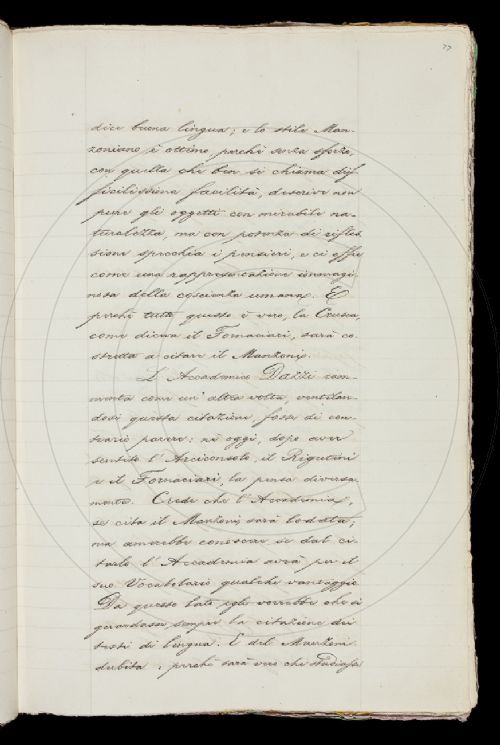 77
dice buona lingua; e lo stile Man-
zoniano è ottimo, perchè senza sforzo,
con quella che ben si chiama dif-
ficilissima facilità, descrive non
pure gli oggetti con mirabile na-
turalezza, ma con potenza di rifles-
sione specchia i pensieri, e ci offre
come una rappresentazione immagi-
nosa della coscienza umana. E
perchè tutto questo è vero, la Crusca,
come diceva il Fornaciari, sarà co-
stretta a citare il Manzoni.
L'Accademico Dazzi ram-
menta come un'altra volta, ventilan-
dosi questa citazione fosse di con-
trario parere: nè oggi, dopo aver
sentito l'Arciconsolo, il Rigutini
e il Fornaciari, la pensa diversa-
mente. Crede che l'Accademia,
se cita il Manzoni, sarà lodata;
ma amerebbe conoscere se dal ci-
tarlo l'Accademia avrà per il
suo Vocabolario qualche vantaggio.
Da questo lato egli vorrebbe che si
guardasse sempre la citazione dei
testi di lingua. E del Manzoni
dubita: perchè sarà vero che studiasse